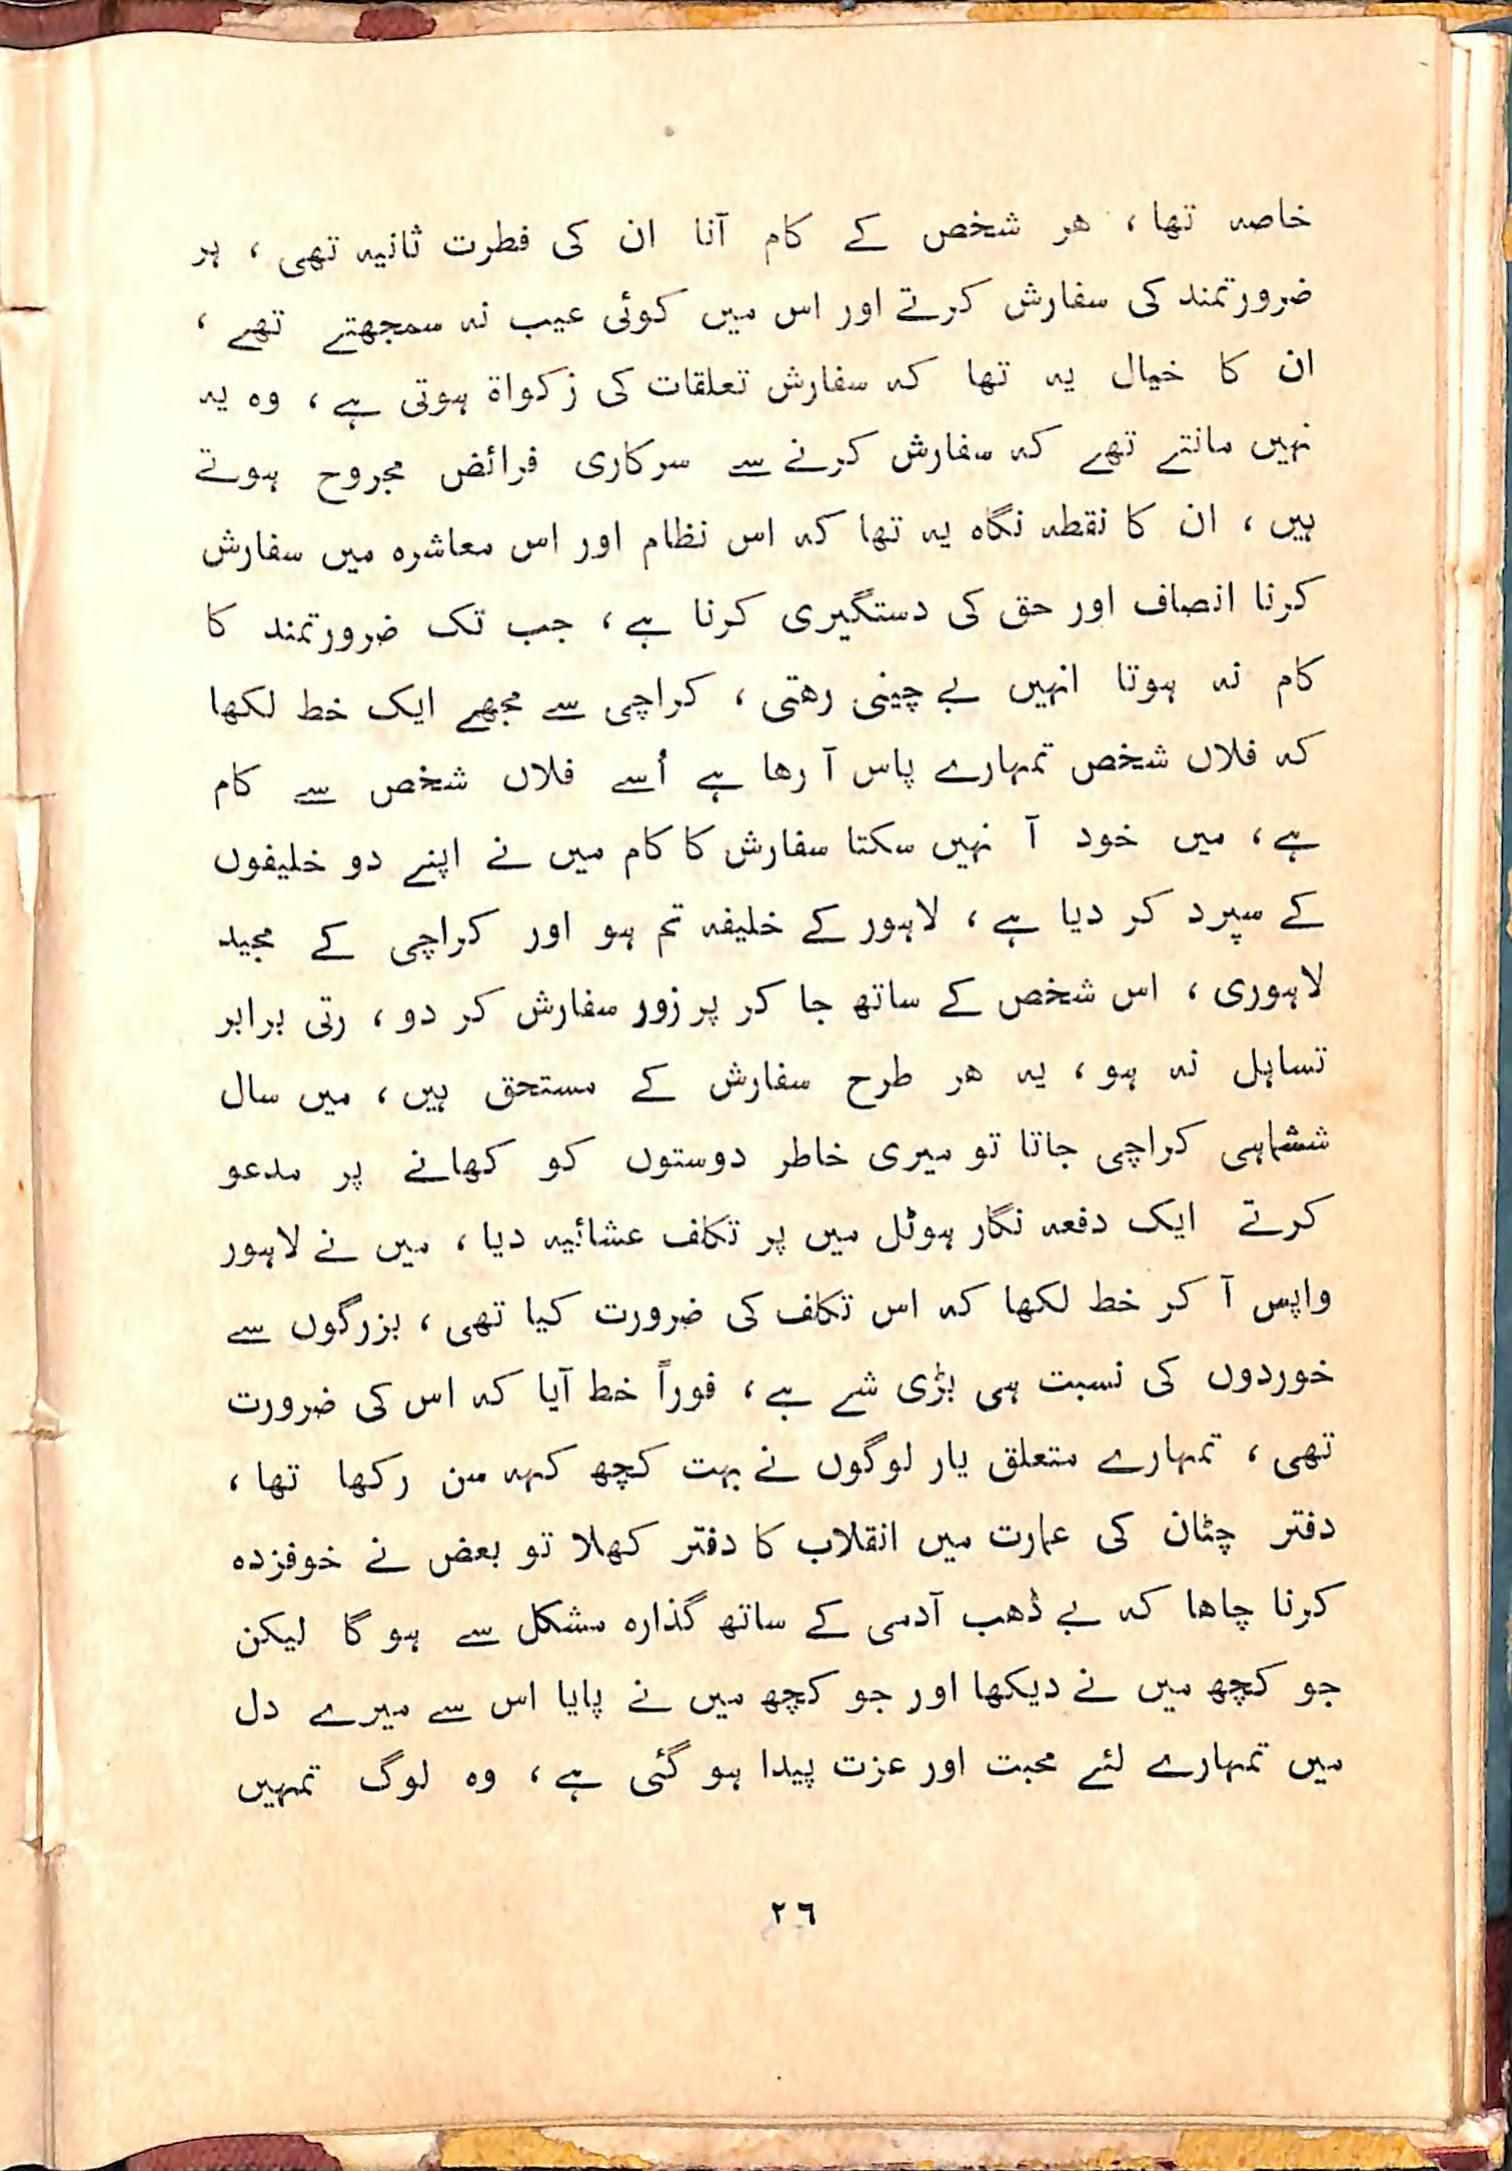 خاصہ تھا، ھر شخص کے کام آنا ان کی فطرت ثانیہ تھی، ہر
ضرورتمند کی سفارش کرتے اور اس میں کوئی عیب نہ سمجھتے تھے،
ان کا خیال یہ تھا کہ سفارش تعلقات کی زکواۃ ہوتی ہے، وہ یہ
نہیں مانتے تھے کہ سفارش کرنے سے سرکاری فرائض مجروح ہوتے
ہیں، ان کا نقطہ نگاہ یہ تھا کہ اس نظام اور اس معاشرہ میں سفارش
کرنا انصاف اور حق کی دستگیری کرنا ہے، جب تک ضرورتمند کا
کام نہ ہوتا انہیں بے چینی رھتی، کراچی سے مجھے ایک خط لکھا
کہ فلاں شخص تمہارے پاس آ رھا ہے اُسے فلاں شخص سے کام
ہے، میں خود آ نہیں سکتا سفارش کا کام میں نے اپنے دو خلیفوں
کے سپرد کر دیا ہے، لاہور کے خلیفہ تم ہو اور کراچی کے مجید
لاہوری، اس شخص کے ساتھ جا کر پر زور سفارش کر دو، رتی برابر
تساہل نہ ہو، یہ ھر طرح سفارش کے مستحق ہیں، میں سال
ششماہی کراچی جاتا تو میری خاطر دوستوں کو کھانے پر مدعو
کرتے ایک دفعہ نگار ہوٹل میں پر تکلف عشائیہ دیا، میں نے لاہور
واپس آ کر خط لکھا کہ اس تکلف کی ضرورت کیا تھی، بزرگوں سے
خوردوں کی نسبت ہی بڑی شے ہے، فوراً خط آیا کہ اس کی ضرورت
تھی، تمہارے متعلق یار لوگوں نے بہت کچھ کہہ سن رکھا تھا،
دفتر چٹان کی عمارت میں انقلاب کا دفتر کھلا تو بعض نے خوفزدہ
کرنا چاھا کہ بے ڈھب آدمی کے ساتھ گذارہ مشکل سے ہو گا لیکن
جو کچھ میں نے دیکھا اور جو کچھ میں نے پایا اس سے میرے دل
میں تمہارے لئے محبت اور عزت پیدا ہو گئی ہے، وہ لوگ تمہیں
٢٦